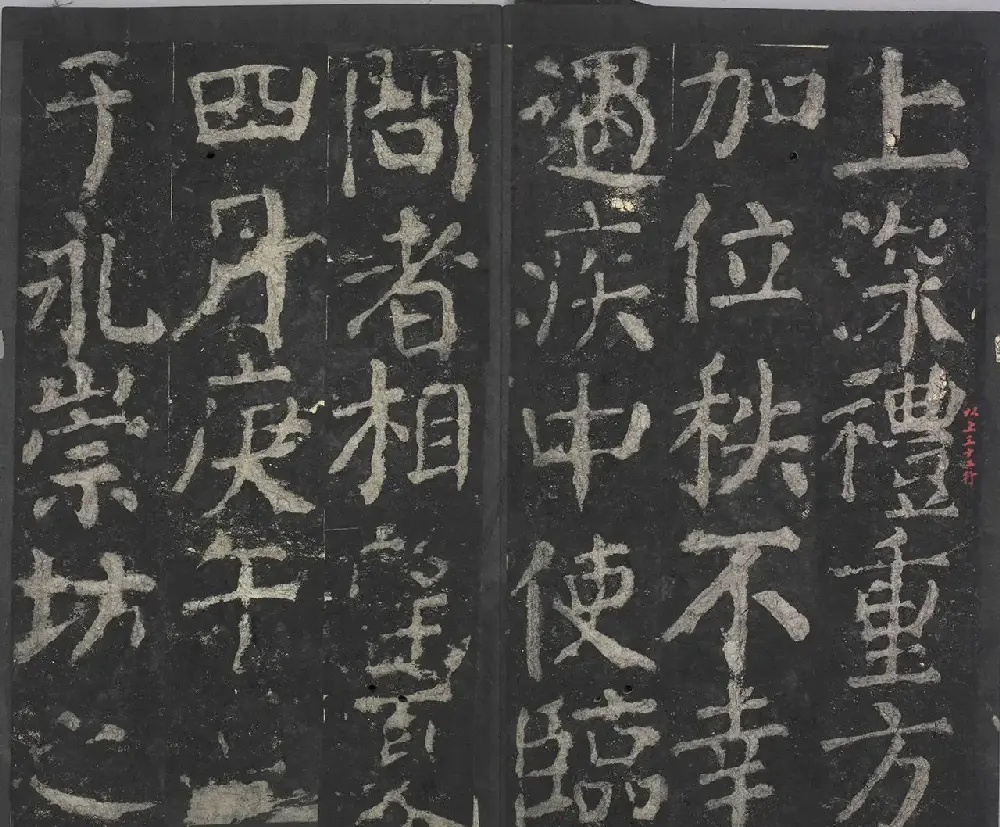 以上三十五行
上深禮重方
加位秩不幸
遇疾中使臨
問者相望夏
四月庚午
于永崇坊之